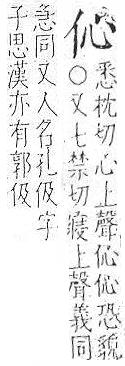 伈
悉枕切心上聲伈伈恐貌
○又七禁切寢上聲義同
急同又人名孔伋字
子思漢亦有郭伋